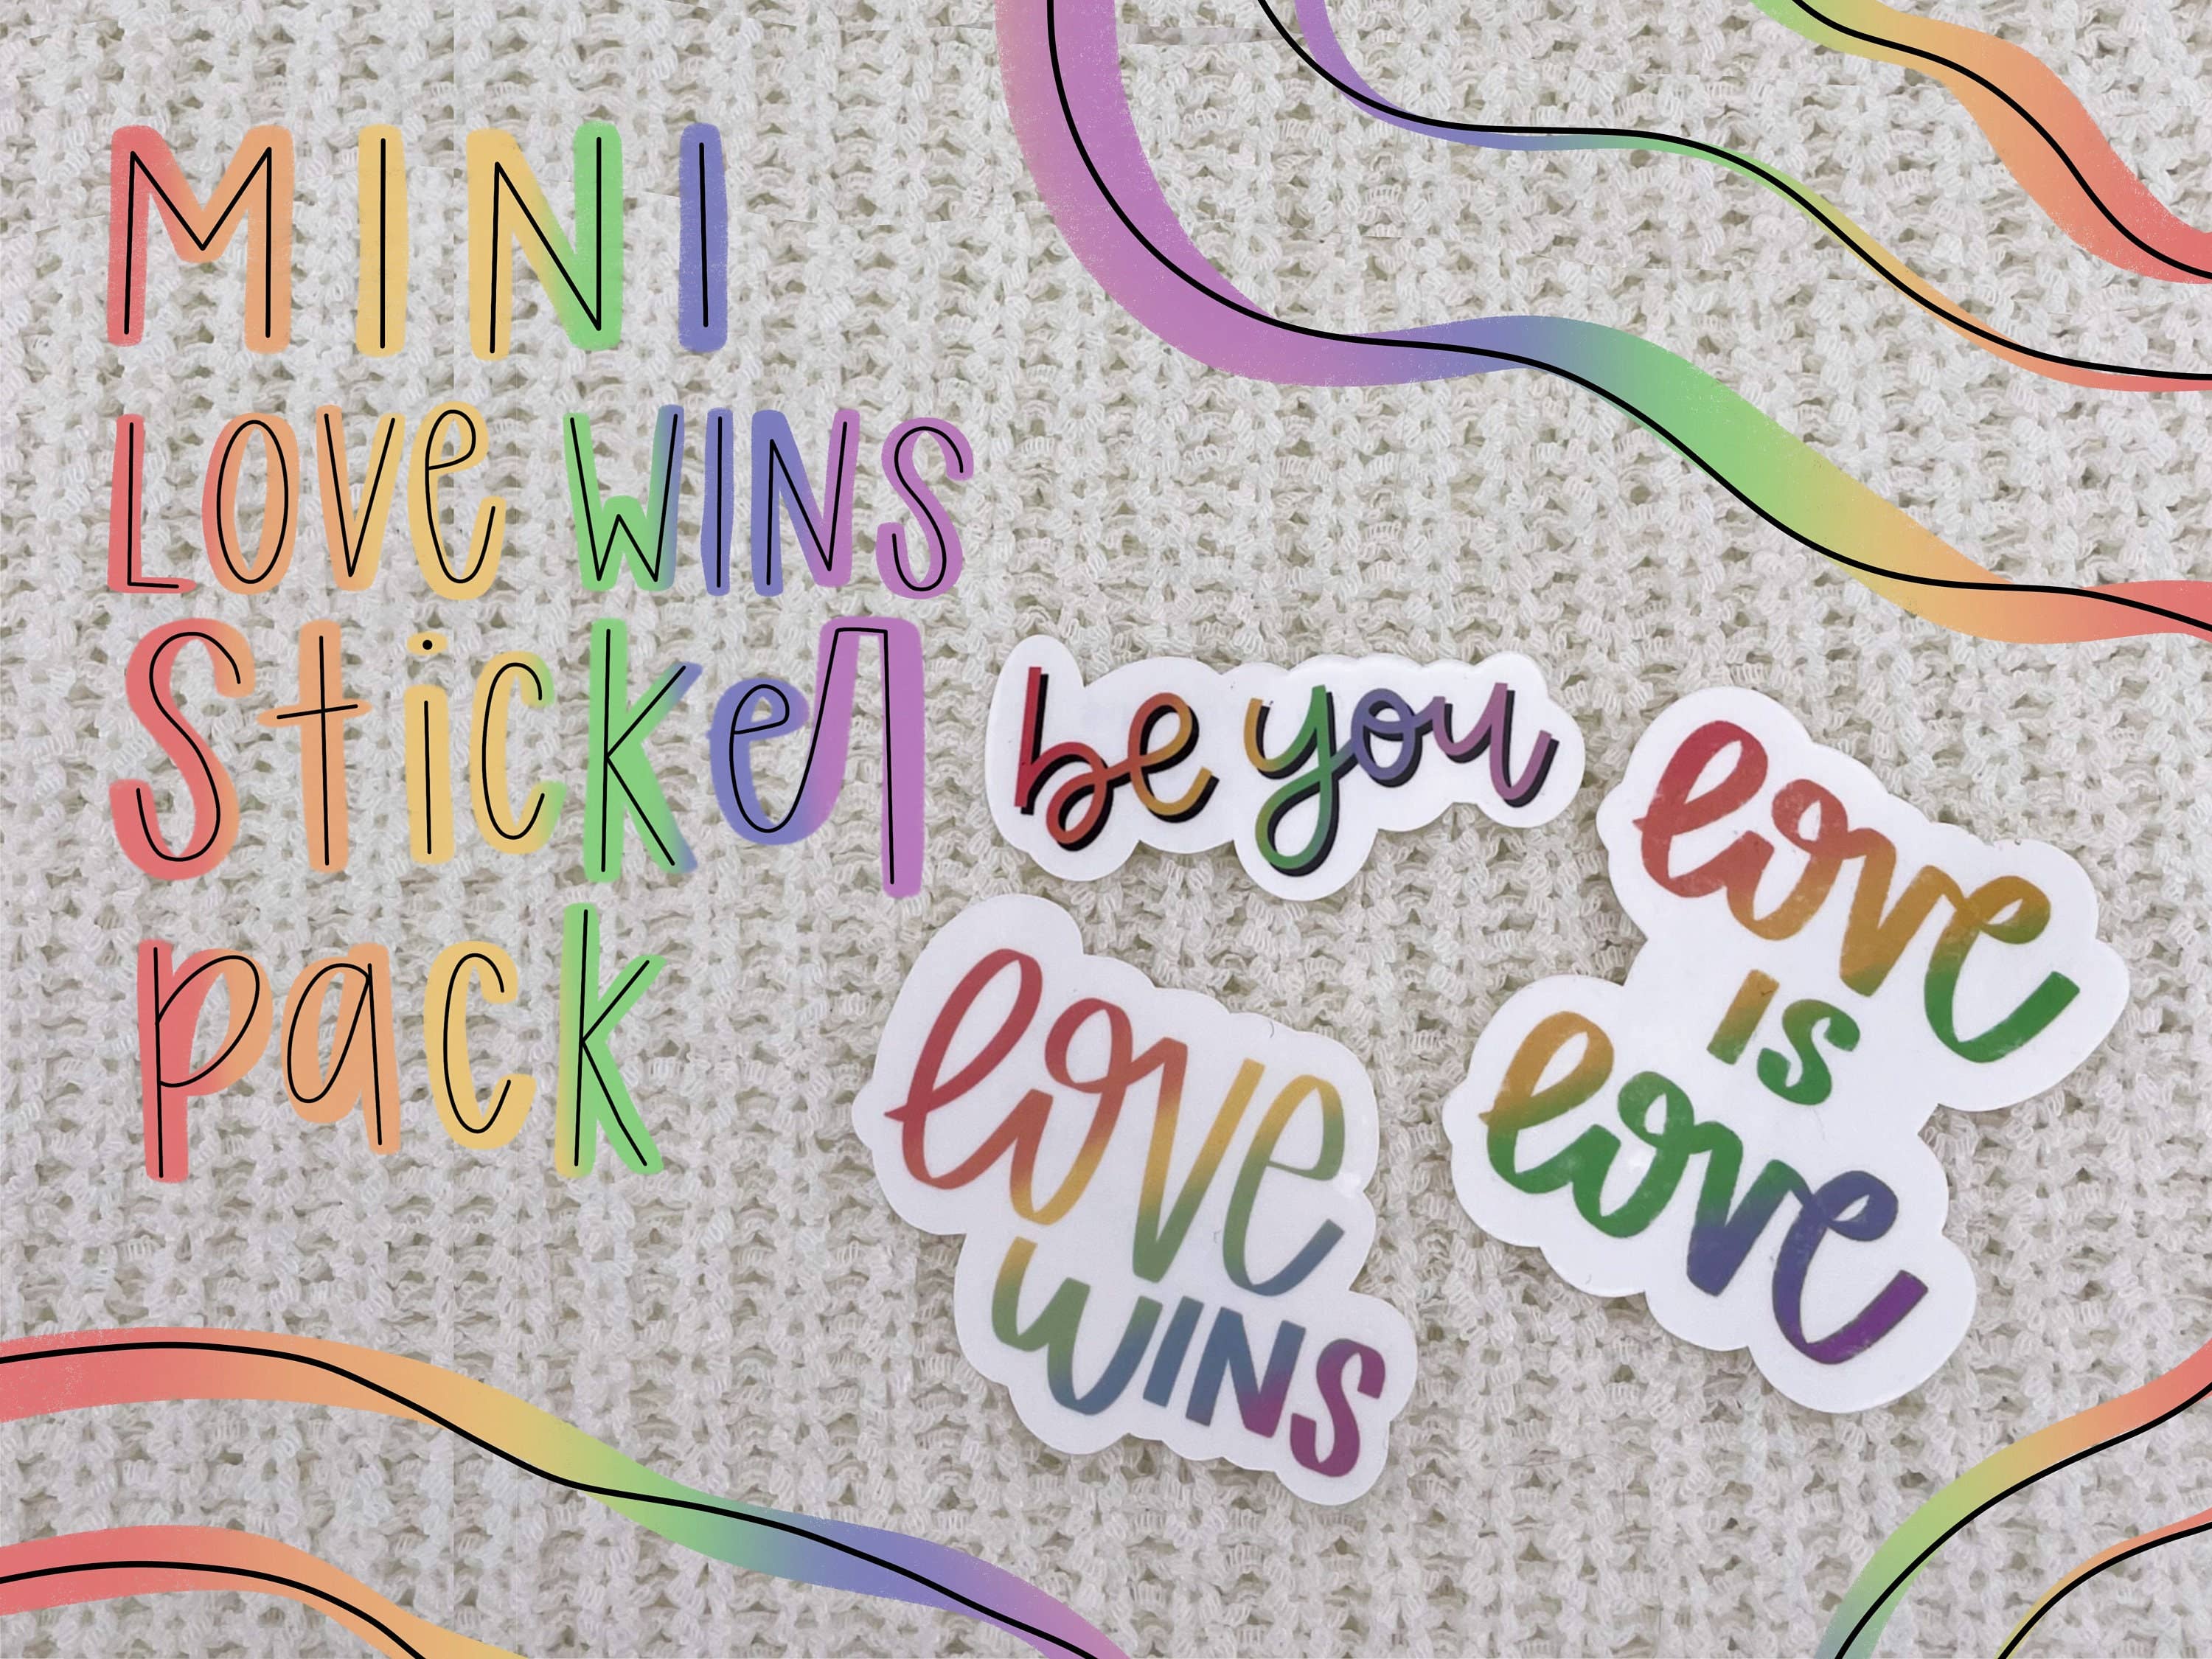 MINI
LOVe WINS
Sticker
pack
be you
love
IS
love
love
WINS